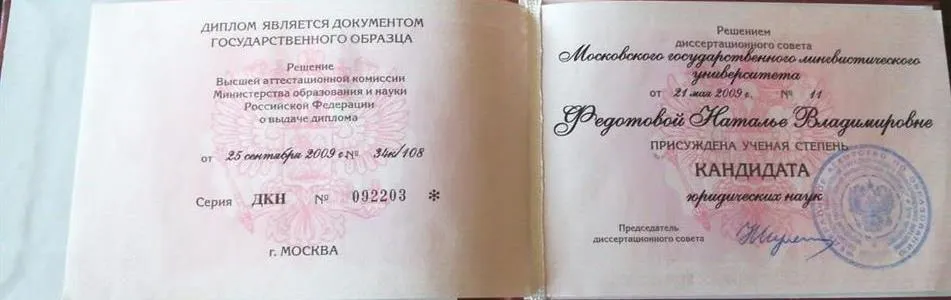 ДИПЛОМ ЯВЛЯЕТСЯ ДОКУМЕНТОМ
ГОСУДАРСТВЕННОГО ОБРАЗЦА
Решение
Высшей аттестационной комиссии
Министерства образования и науки
Российской Федерации
о выдаче диплома
от 25 сентября 2009 г. № 34к/108
Серия ДКН № 092203 *
г. МОСКВА
Решением
диссертационного совета
Московского государственного лингвистического
университета
от 21 мая 2009 г. № 11
Федотовой Наталье Владимировне
ПРИСУЖДЕНА УЧЕНАЯ СТЕПЕНЬ
КАНДИДАТА
юридических наук
Председатель
диссертационного совета